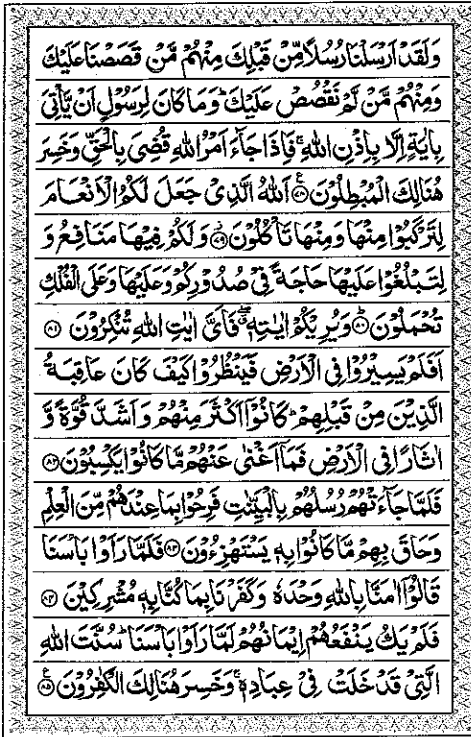 وَلَقَدْ اَرْسَلْنَا رُسُلًا مِّنْ قَبْلِكَ مِنْهُمْ مَّنْ قَصَصْنَا عَلَيْكَ
وَمِنْهُمْ مَّنْ لَّمْ نَقْصُصْ عَلَيْكَ ؕ وَمَا كَانَ لِرَسُوْلٍ اَنْ يَّاْتِيَ
بِاٰيَةٍ اِلَّا بِاِذْنِ اللّٰهِ ۚ فَاِذَا جَآءَ اَمْرُ اللّٰهِ قُضِيَ بِالْحَقِّ وَخَسِرَ
هُنَالِكَ الْمُبْطِلُوْنَ ﴿۷۸﴾ اَللّٰهُ الَّذِيْ جَعَلَ لَكُمُ الْاَنْعَامَ
لِتَرْكَبُوْا مِنْهَا وَمِنْهَا تَاْكُلُوْنَ ﴿۷۹﴾ وَلَكُمْ فِيْهَا مَنَافِعُ وَ
لِتَبْلُغُوْا عَلَيْهَا حَاجَةً فِيْ صُدُوْرِكُمْ وَعَلَيْهَا وَعَلَى الْفُلْكِ
تُحْمَلُوْنَ ﴿۸۰﴾ وَيُرِيْكُمْ اٰيٰتِهٖ ۖ فَاَيَّ اٰيٰتِ اللّٰهِ تُنْكِرُوْنَ ﴿۸۱﴾
اَفَلَمْ يَسِيْرُوْا فِي الْاَرْضِ فَيَنْظُرُوْا كَيْفَ كَانَ عَاقِبَةُ
الَّذِيْنَ مِنْ قَبْلِهِمْ ؕ كَانُوْۤا اَكْثَرَ مِنْهُمْ وَاَشَدَّ قُوَّةً وَّ
اٰثَارًا فِي الْاَرْضِ فَمَاۤ اَغْنٰى عَنْهُمْ مَّا كَانُوْا يَكْسِبُوْنَ ﴿۸۲﴾
فَلَمَّا جَآءَتْهُمْ رُسُلُهُمْ بِالْبَيِّنٰتِ فَرِحُوْا بِمَا عِنْدَهُمْ مِّنَ الْعِلْمِ
وَحَاقَ بِهِمْ مَّا كَانُوْا بِهٖ يَسْتَهْزِءُوْنَ ﴿۸۳﴾ فَلَمَّا رَاَوْا بَاْسَنَا
قَالُوْۤا اٰمَنَّا بِاللّٰهِ وَحْدَهٗ وَكَفَرْنَا بِمَا كُنَّا بِهٖ مُشْرِكِيْنَ ﴿۸۴﴾
فَلَمْ يَكُ يَنْفَعُهُمْ اِيْمَانُهُمْ لَمَّا رَاَوْا بَاْسَنَا ؕ سُنَّتَ اللّٰهِ
الَّتِيْ قَدْ خَلَتْ فِيْ عِبَادِهٖ ۚ وَخَسِرَ هُنَالِكَ الْكٰفِرُوْنَ ﴿۸۵﴾